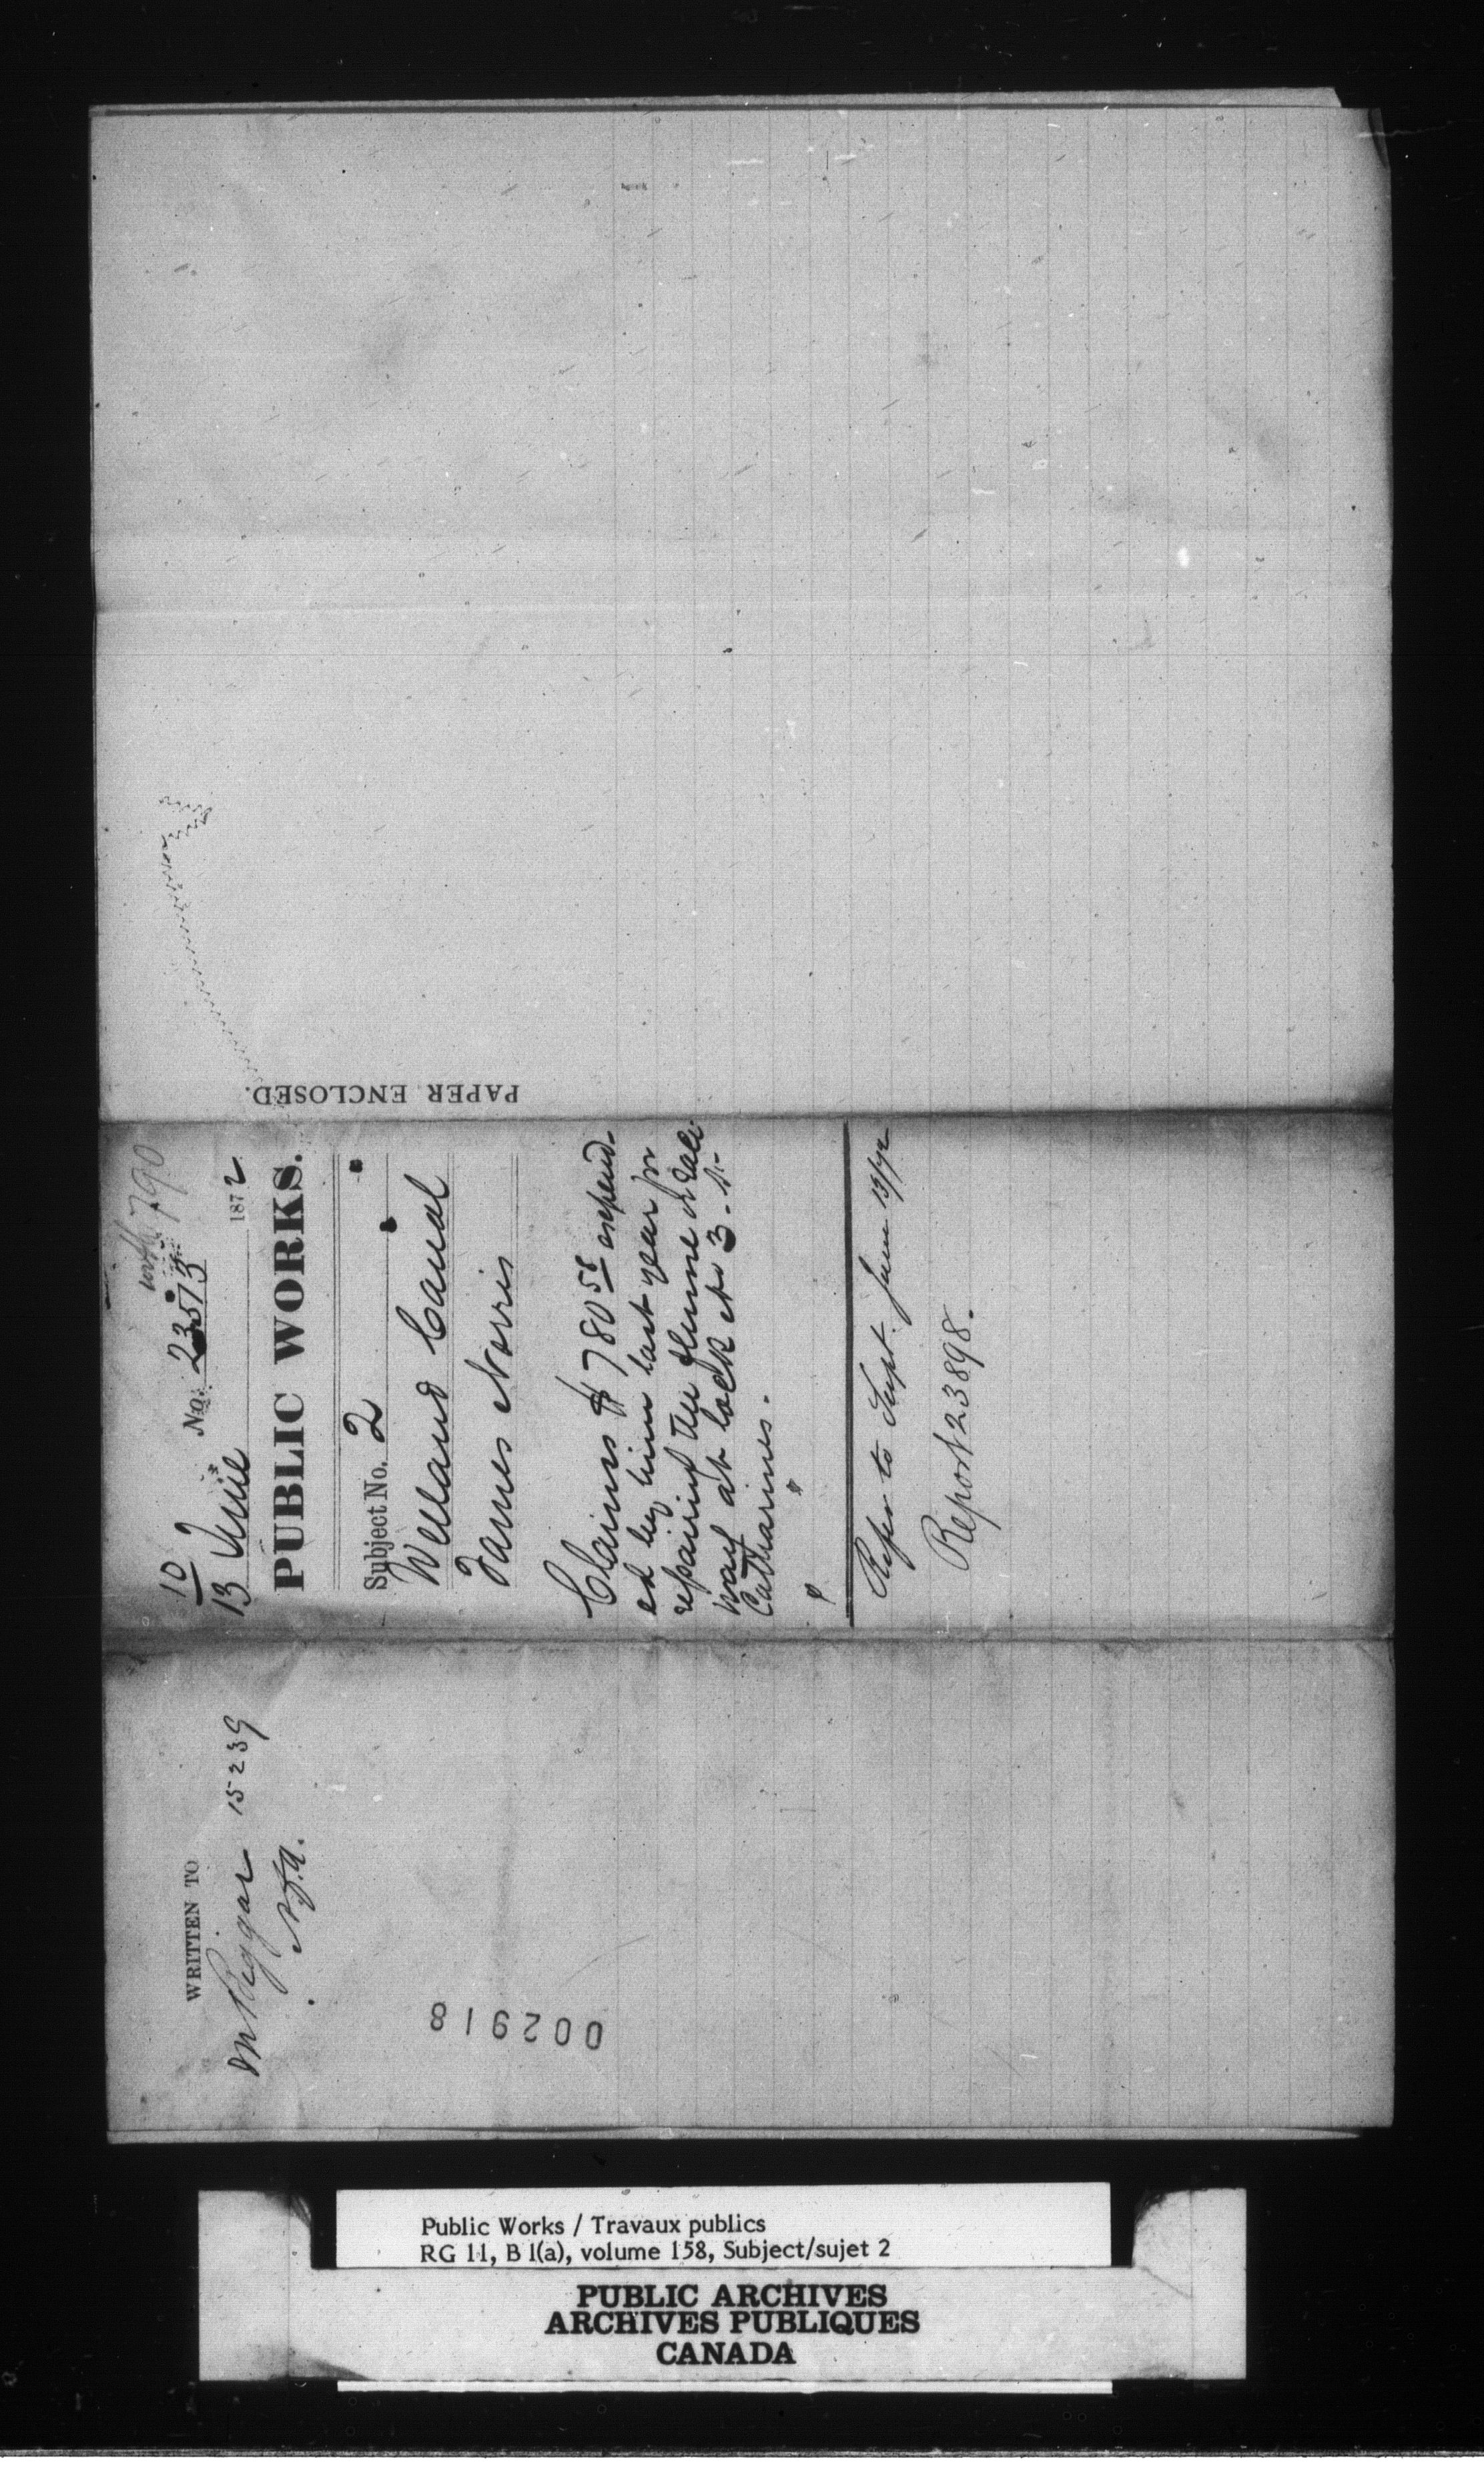 with 790
10
13 June No. 23573 1872
PUBLIC WORKS.
Subject No. 2
Welland Canal
James Norris
Claims $780 58 expend-
ed by him last year for
repairing the flume &
way at lock No 3 - St.
Catharines.
Refer to Supt. June 13/72
Report 23898.
PAPER ENCLOSED.
WRITTEN TO
15239
002918
Public Works / Travaux publics
RG 11, B 1(a), volume 158, Subject/sujet 2
PUBLIC ARCHIVES
ARCHIVES PUBLIQUES
CANADA